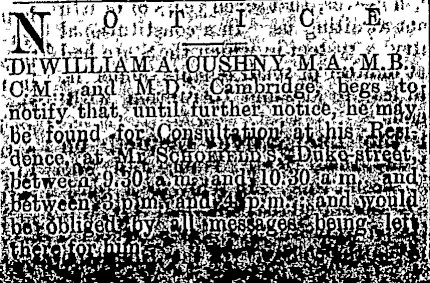 NOTICE.
Dr. WILLIAM A. CUSHNY, M.A., M.B.,
C.M., and M.D., Cambridge, begs to
notify that, until further notice, he may
be found for Consultation at his Resi-
dence, at Mr. SCHOFIELD'S, Duke-street,
between 9.30 a.m. and 10.30 a.m., and
between 3 p.m. and 4 p.m.; and would
be obliged by all messages being left
there for him.